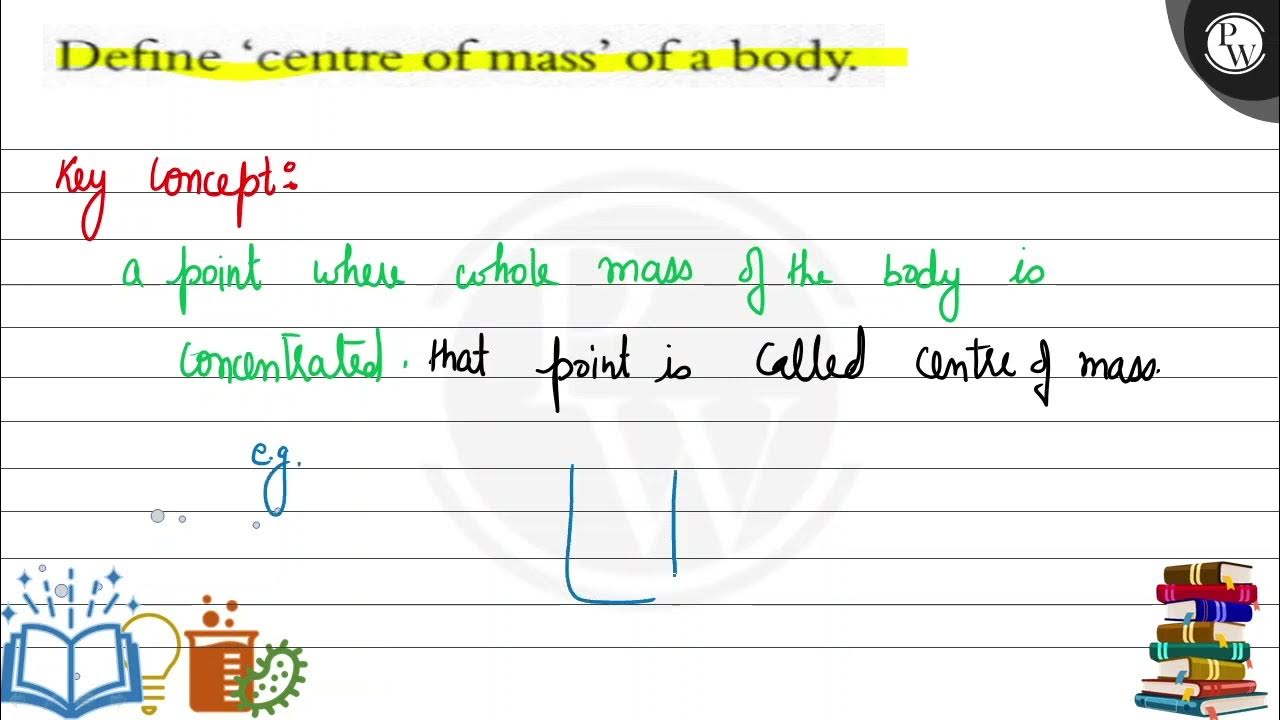 Define ‘centre of mass’ of a body.
PW
Key Concept:
a point where whole mass of the body is
concentrated. that point is called centre of mass.
e.g.